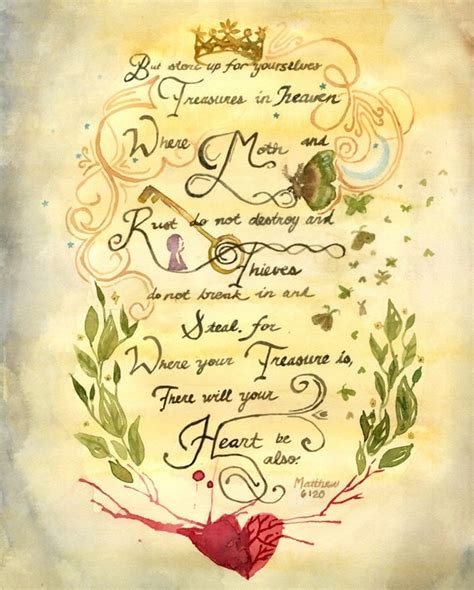 But store up for yourselves
Treasures in heaven
Where Moth and
Rust do not destroy and
Thieves
do not break in and
Steal. for
Where your Treasure is,
There will your
Heart be
also.
Matthew
6:20